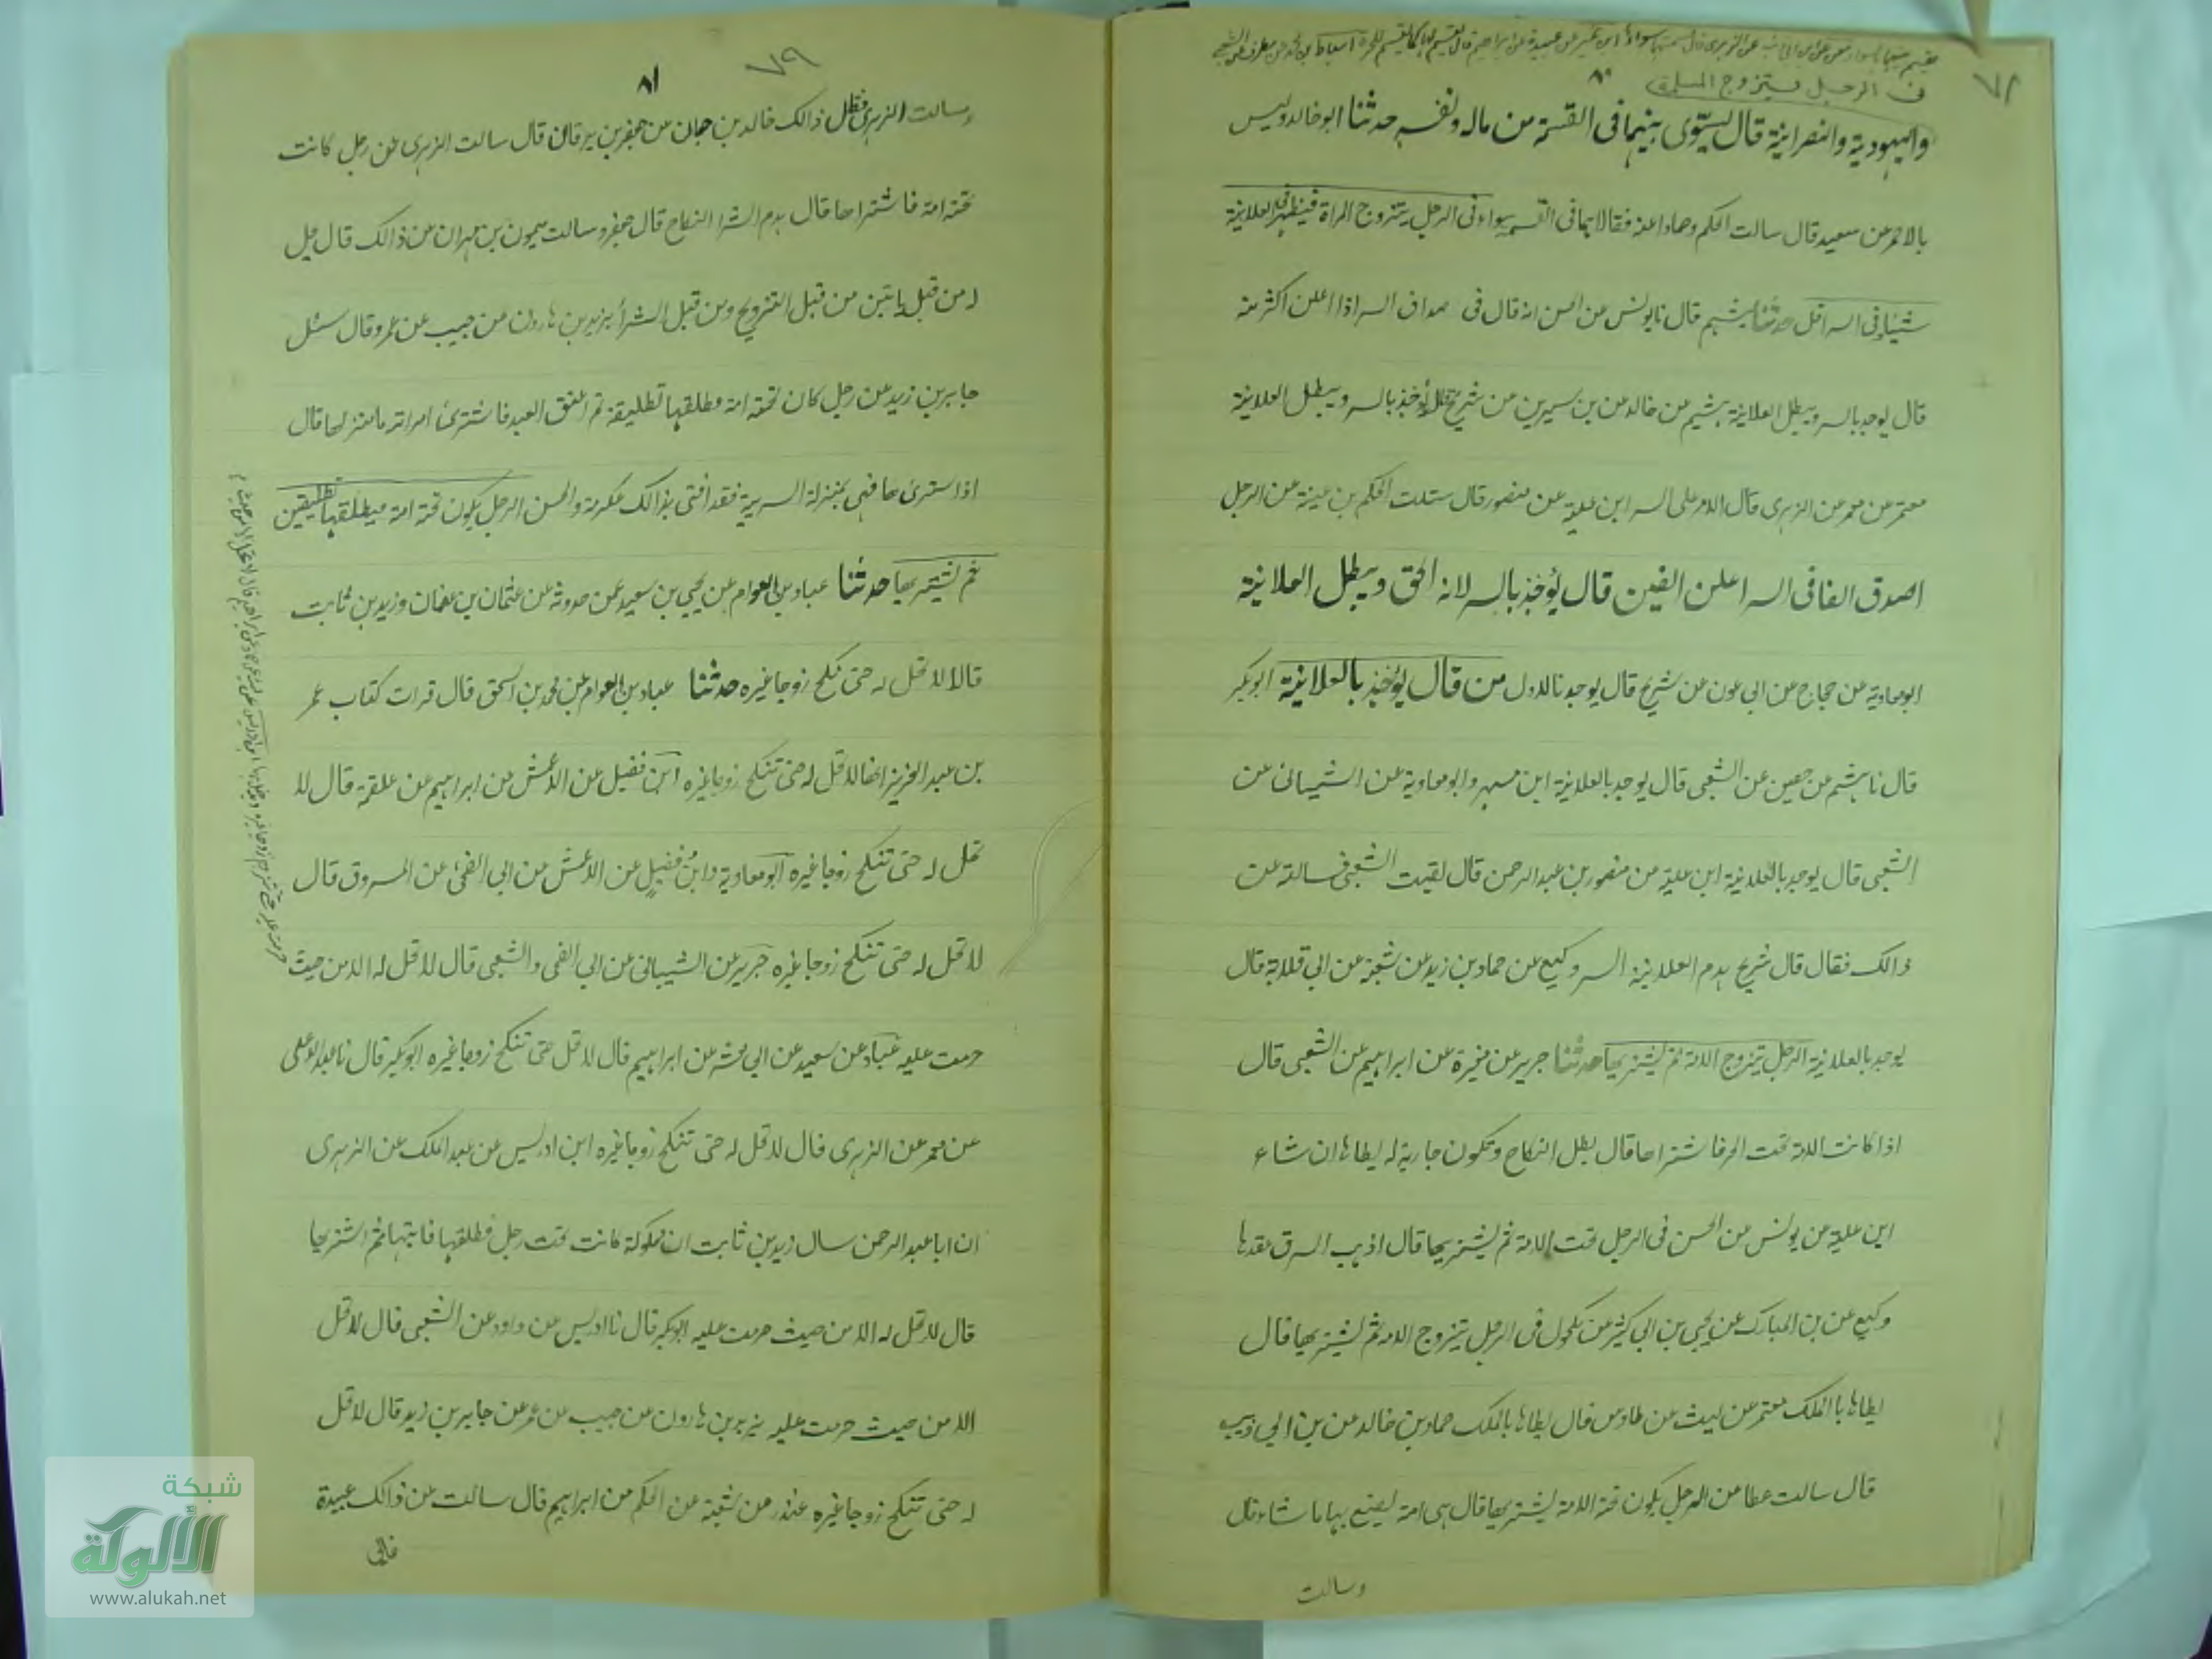 ٧٨
٨٠
فى الرجل يتزوج المسلمة
واليهودية والنصرانية قال يسوّى بينهما فى القسمة من ماله ونفسه حدثنا ابو خالد وليس
بالاحمر عن سعيد قال سالت الحكم وحمادا عنه فقالا هما فى القسم سواء فى الرجل يتزوج المراة فيظهر فى العلانية
شيئا وفى السر اقل حدثنا هشيم قال نا يونس عن الحسن انه قال فى صداق السر اذا اعلن اكثر منه
قال يوخذ بالسر ويبطل العلانية هشيم عن خالد عن بن سيرين عن شريح قال يؤخذ بالسر ويبطل العلانية
معتمر عن معمر عن الزهرى قال الامر على السر ابن علية عن منصور قال سئلت الحكم بن عيينة عن الرجل
اصدق الفا فى السر اعلن الفين قال يؤخذ بالسر لانه الحق ويبطل العلانية
ابو معاوية عن حجاج عن ابى عون عن شريح قال يوخذ بالاول من قال يؤخذ بالعلانية ابو بكر
قال نا هشيم عن حصين عن الشعبى قال يوخذ بالعلانية ابن مسهر وابو معاوية عن الشيبانى عن
الشعبى قال يوخذ بالعلانية ابن علية عن منصور بن عبد الرحمن قال لقيت الشعبى فسالته عن
ذالك فقال قال شريح يهدم العلانية السر وكيع عن حماد بن زيد عن شعبة عن ابى قلابة قال
يوخذ بالعلانية الرجل يتزوج الامة ثم يشتريها حدثنا جرير عن مغيرة عن ابراهيم عن الشعبى قال
اذا كانت الامة تحت الحر فاشتراها قال بطل النكاح وتكون جارية له يطاها ان شاء
ابن علية عن يونس عن الحسن فى الرجل تحت الامة ثم يشتريها قال اذهب الرق عقدها
وكيع عن بن المبارك عن يحيى بن ابى كثير عن مكحول فى الرجل يتزوج الامة ثم يشتريها قال
يطاها بالملك معتمر عن ليث عن طاوس قال يطاها بالملك حماد بن خالد عن بن ابى ذيب
قال سالت عطا عن الرجل يكون تحته الامة يشتريها قال هى امة يصنع بها ما شاء قال
وسالت
٧٩
٨١
وسالت الزهرى فقال ذالك خالد بن حيان عن جعفر بن برقان قال سالت الزهرى عن رجل كانت
تحته امة فاشتراها قال يهدم الشرا النكاح قال جعفر وسالت ميمون بن مهران عن ذالك قال يحل
له من قبل بابين من قبل التزويج ومن قبل الشرأ يزيد بن هارون عن حبيب عن عمرو قال سئل
جابر بن زيد عن رجل كان تحته امة فطلقها تطليقة ثم اعتق العبد فاشترى امراته ما منزلتها قال
اذا اشترى ها فهى بمنزلة السرية فقد افتى بذالك عكرمة والحسن الرجل يكون تحته امة فيطلقها تطليقتين
ثم يشتريها حدثنا عباد بن العوام عن يحيى بن سعيد عمن حدثه عن عثمان بن عفان وزيد بن ثابت
قالا لا تحل له حتى تنكح زوجا غيره حدثنا عباد بن العوام عن محمد بن اسحق قال قرات كتاب عمر
بن عبد العزيز انها لا تحل له حتى تنكح زوجا غيره ابن فضيل عن الاعمش عن ابراهيم عن علقمة قال لا
تحل له حتى تنكح زوجا غيره ابو معاوية وابن فضيل عن الاعمش عن ابى الضحى عن المسروق قال
لا تحل له حتى تنكح زوجا غيره جرير عن الشيبانى عن ابى الضحى والشعبى قال لا تحل له الا من حيث
حرمت عليه عباد عن سعيد عن ابى معشر عن ابراهيم قال لا تحل حتى تنكح زوجا غيره ابو بكر قال نا عبد الاعلى
عن معمر عن الزهرى قال لا تحل له حتى تنكح زوجا غيره ابن ادريس عن عبد الملك عن الزهرى
ان ابا عبد الرحمن سال زيد بن ثابت ان مملوكة كانت تحت رجل فطلقها فابتها ثم اشتريها
قال لا تحل له الا من حيث حرمت عليه ابو بكر قال نا ادريس عن داود عن الشعبى قال لا تحل
الا من حيث حرمت عليه يزيد بن هارون عن حبيب عن عمر عن جابر بن زيد قال لا تحل
له حتى تنكح زوجا غيره غندر عن شعبة عن الحكم عن ابراهيم قال سالت عن ذالك عبيدة
فابى
شبكة
الألوكة
www.alukah.net